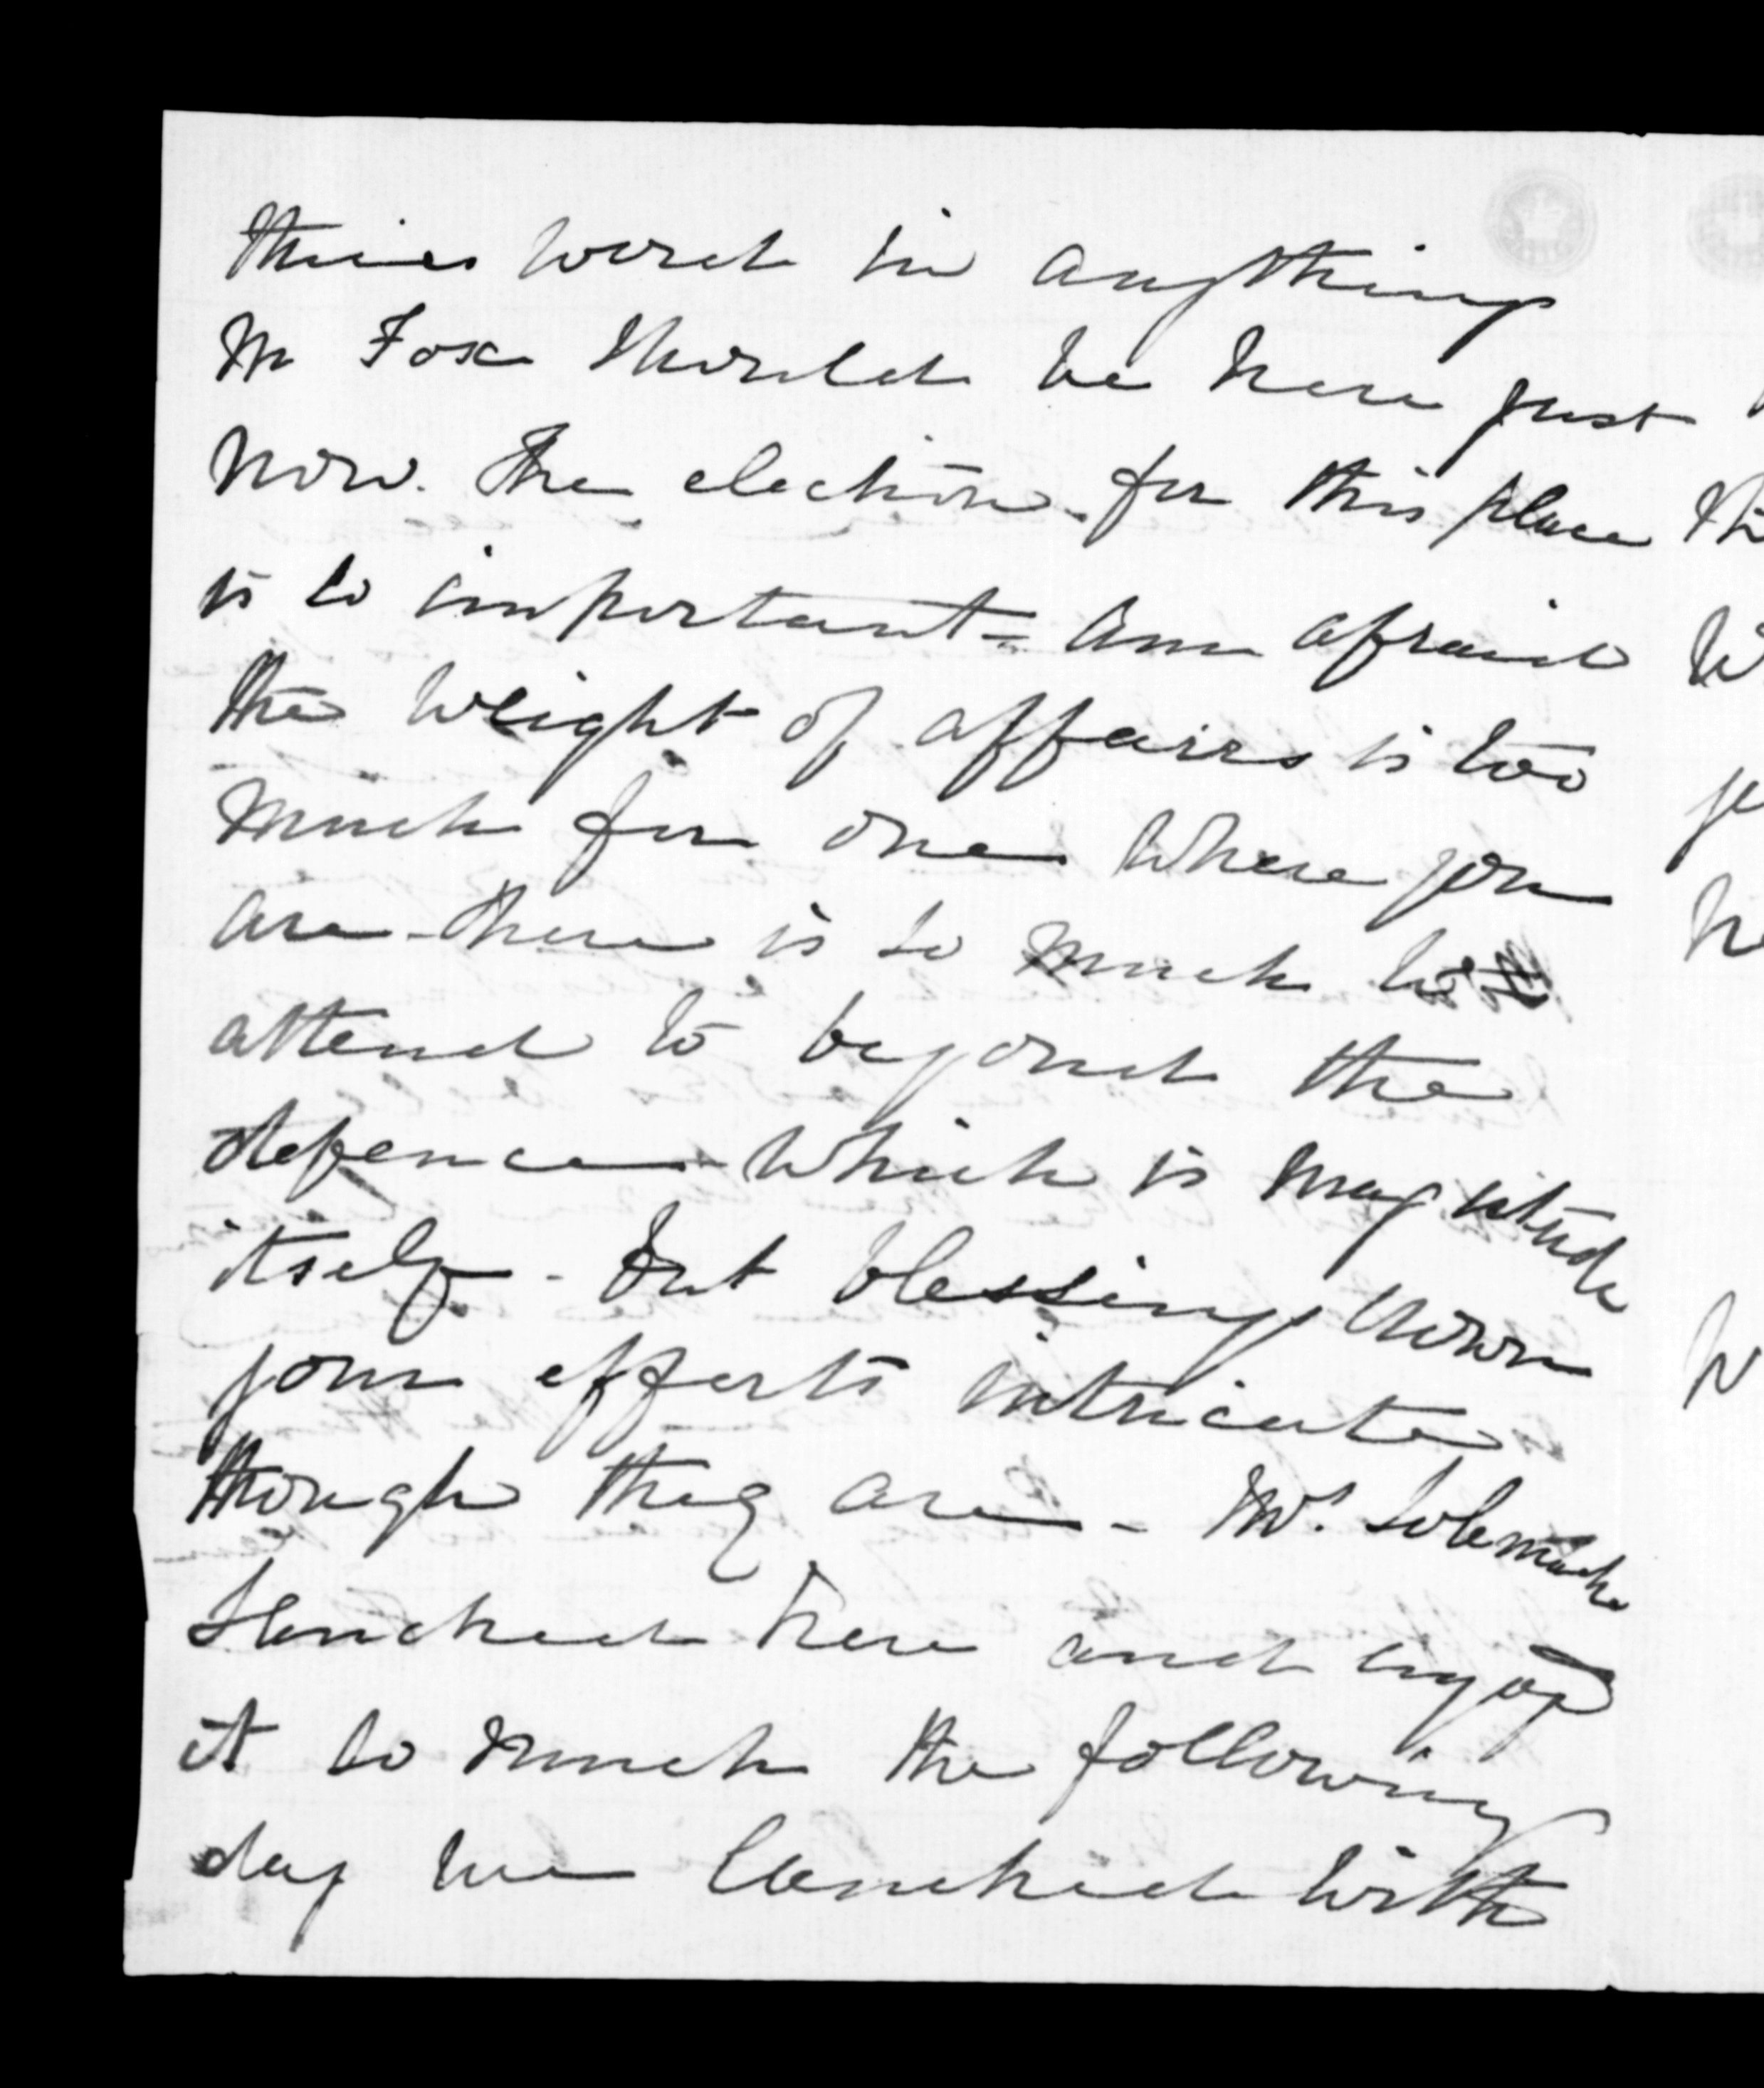 their word in anything
Mr Fox should be here just
now. The election for this place
is so important - Am afraid
the weight of affairs is too
much for one where you
are - there is so much to
attend to beyond the
defence which is magnitude
itself - but blessings crown
your efforts intricate
though they are - Mr.
lunched here and enjoyed
it so much the following
day we lunched with